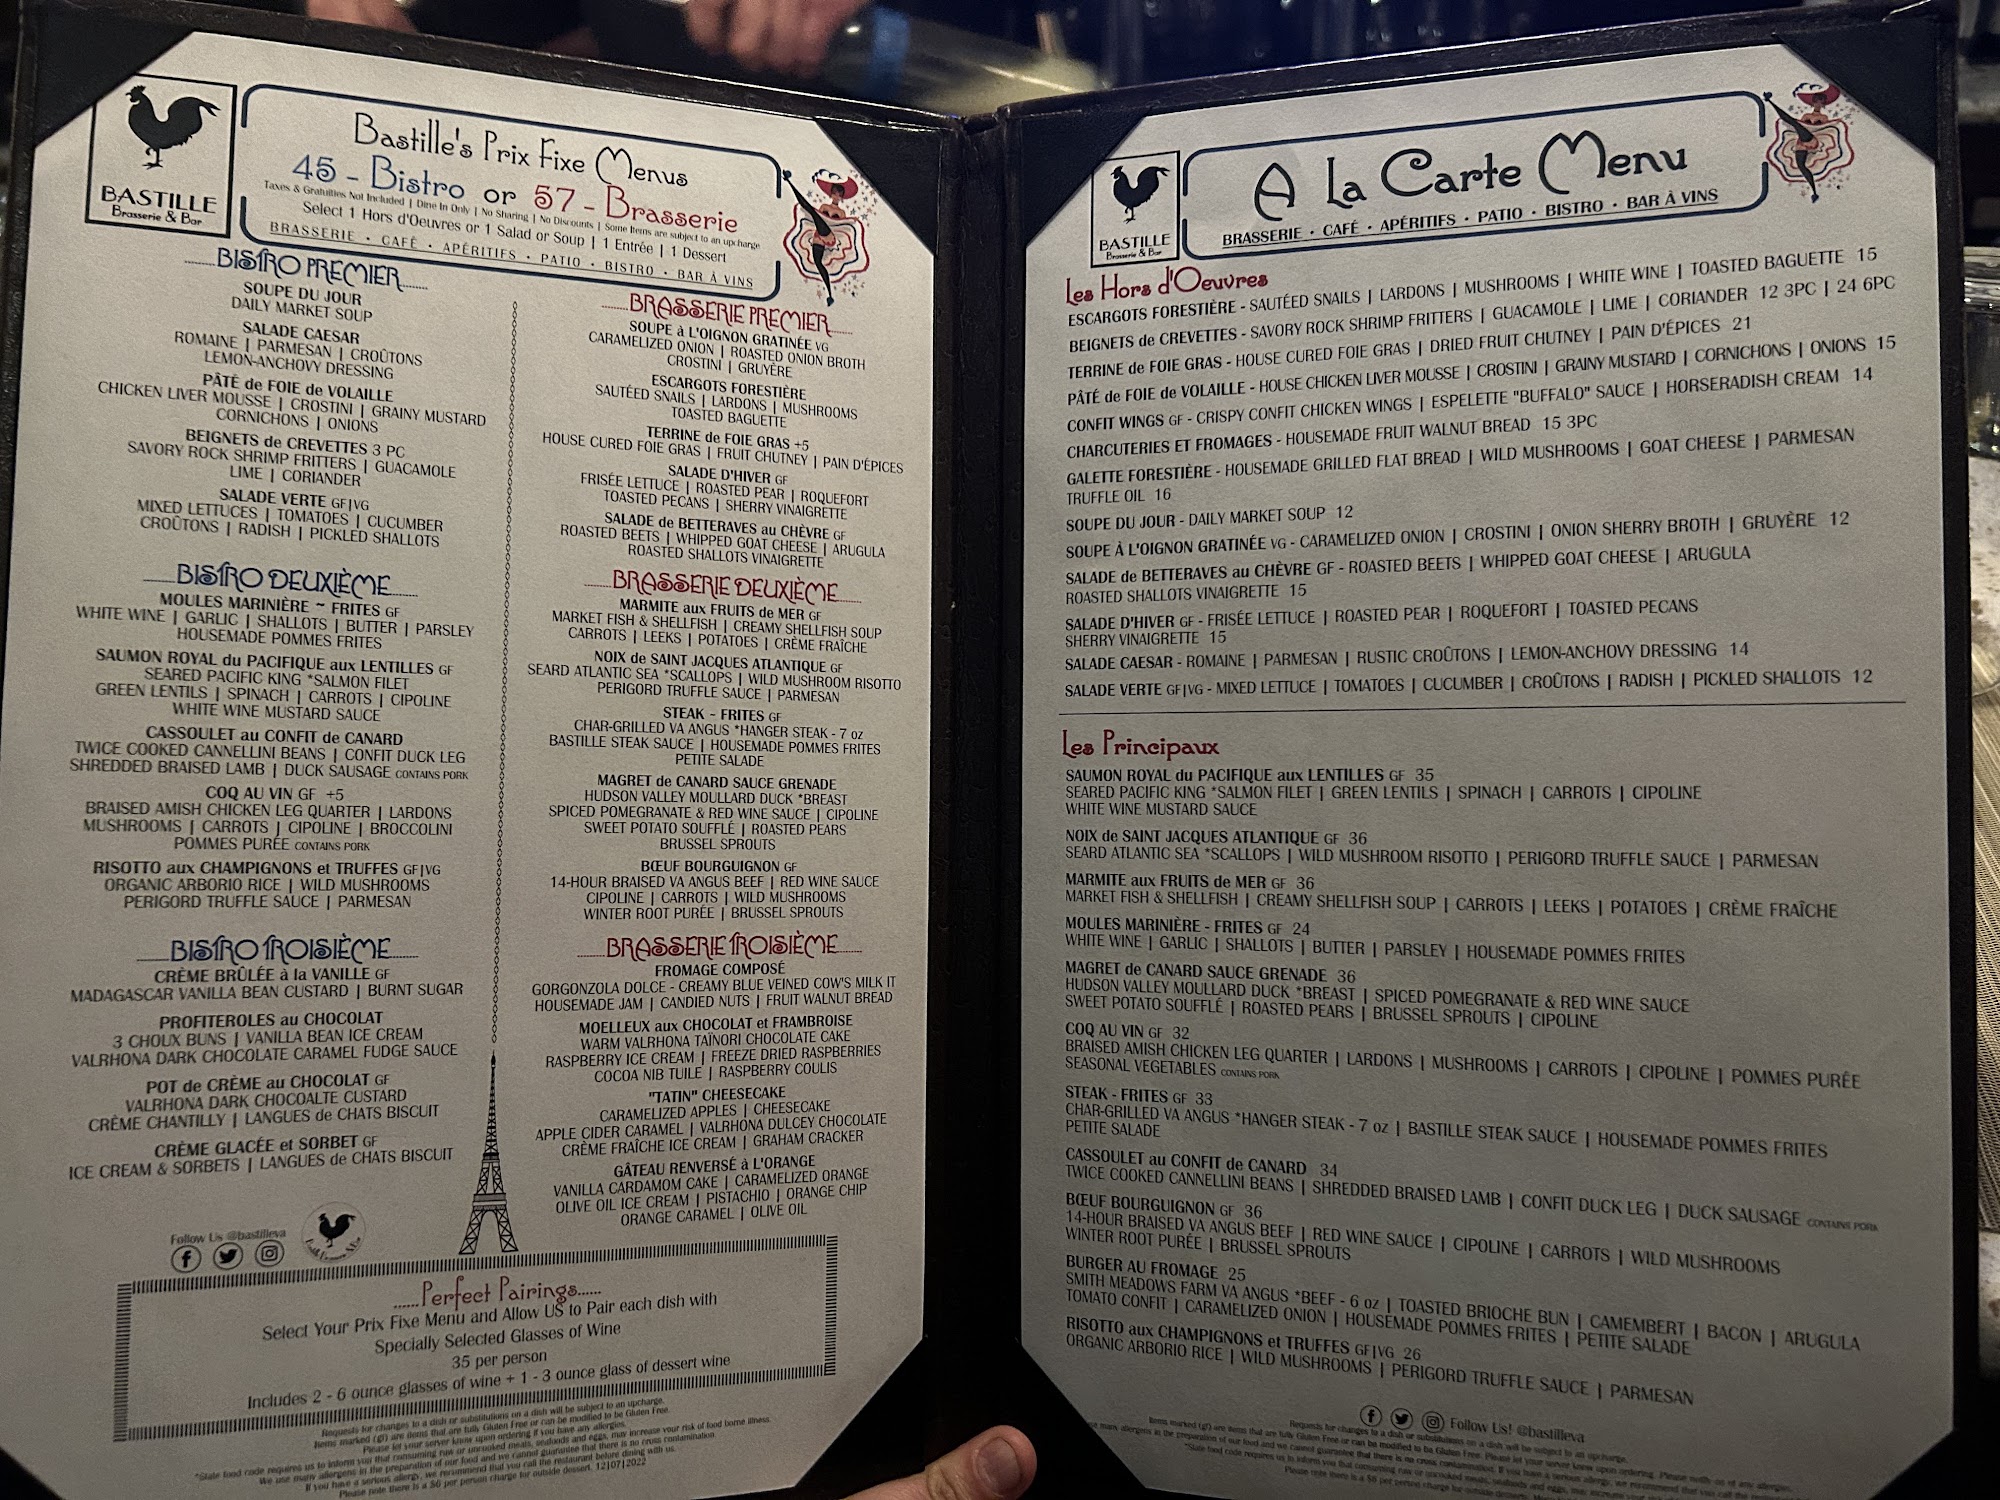 BASTILLE
Brasserie & Bar
Bastille's Prix Fixe Menus
45 - Bistro or 57 - Brasserie
Taxes & Gratuities Not Included | Dine In Only | No Sharing | No Discounts | Some Items are subject to an upcharge
Select 1 Hors d'Oeuvres or 1 Salad or Soup | 1 Entrée | 1 Dessert
BRASSERIE • CAFÉ • APÉRITIFS • PATIO • BISTRO • BAR À VINS
BISTRO PREMIER
SOUPE DU JOUR
DAILY MARKET SOUP
SALADE CAESAR
ROMAINE | PARMESAN | CROÛTONS
LEMON-ANCHOVY DRESSING
PÂTÉ de FOIE de VOLAILLE
CHICKEN LIVER MOUSSE | CROSTINI | GRAINY MUSTARD
CORNICHONS | ONIONS
BEIGNETS de CREVETTES 3 PC
SAVORY ROCK SHRIMP FRITTERS | GUACAMOLE
LIME | CORIANDER
SALADE VERTE GF|VG
MIXED LETTUCES | TOMATOES | CUCUMBER
CROÛTONS | RADISH | PICKLED SHALLOTS
BISTRO DEUXIÈME
MOULES MARINIÈRE ~ FRITES GF
WHITE WINE | GARLIC | SHALLOTS | BUTTER | PARSLEY
HOUSEMADE POMMES FRITES
SAUMON ROYAL du PACIFIQUE aux LENTILLES GF
SEARED PACIFIC KING *SALMON FILET
GREEN LENTILS | SPINACH | CARROTS | CIPOLINE
WHITE WINE MUSTARD SAUCE
CASSOULET au CONFIT de CANARD
TWICE COOKED CANNELLINI BEANS | CONFIT DUCK LEG
SHREDDED BRAISED LAMB | DUCK SAUSAGE CONTAINS PORK
COQ AU VIN GF +5
BRAISED AMISH CHICKEN LEG QUARTER | LARDONS
MUSHROOMS | CARROTS | CIPOLINE | BROCCOLINI
POMMES PURÉE CONTAINS PORK
RISOTTO aux CHAMPIGNONS et TRUFFES GF|VG
ORGANIC ARBORIO RICE | WILD MUSHROOMS
PERIGORD TRUFFLE SAUCE | PARMESAN
BISTRO TROISIÈME
CRÈME BRÛLÉE à la VANILLE GF
MADAGASCAR VANILLA BEAN CUSTARD | BURNT SUGAR
PROFITEROLES au CHOCOLAT
3 CHOUX BUNS | VANILLA BEAN ICE CREAM
VALRHONA DARK CHOCOLATE CARAMEL FUDGE SAUCE
POT de CRÈME au CHOCOLAT GF
VALRHONA DARK CHOCOALTE CUSTARD
CRÈME CHANTILLY | LANGUES de CHATS BISCUIT
CRÈME GLACÉE et SORBET GF
ICE CREAM & SORBETS | LANGUES de CHATS BISCUIT
Follow Us @bastilleva
BRASSERIE PREMIER
SOUPE à L'OIGNON GRATINÉE VG
CARAMELIZED ONION | ROASTED ONION BROTH
CROSTINI | GRUYÈRE
ESCARGOTS FORESTIÈRE
SAUTÉED SNAILS | LARDONS | MUSHROOMS
TOASTED BAGUETTE
TERRINE de FOIE GRAS +5
HOUSE CURED FOIE GRAS | FRUIT CHUTNEY | PAIN D'ÉPICES
SALADE D'HIVER GF
FRISÉE LETTUCE | ROASTED PEAR | ROQUEFORT
TOASTED PECANS | SHERRY VINAIGRETTE
SALADE de BETTERAVES au CHÈVRE GF
ROASTED BEETS | WHIPPED GOAT CHEESE | ARUGULA
ROASTED SHALLOTS VINAIGRETTE
BRASSERIE DEUXIÈME
MARMITE aux FRUITS de MER GF
MARKET FISH & SHELLFISH | CREAMY SHELLFISH SOUP
CARROTS | LEEKS | POTATOES | CRÈME FRAÎCHE
NOIX de SAINT JACQUES ATLANTIQUE GF
SEARD ATLANTIC SEA *SCALLOPS | WILD MUSHROOM RISOTTO
PERIGORD TRUFFLE SAUCE | PARMESAN
STEAK - FRITES GF
CHAR-GRILLED VA ANGUS *HANGER STEAK - 7 oz
BASTILLE STEAK SAUCE | HOUSEMADE POMMES FRITES
PETITE SALADE
MAGRET de CANARD SAUCE GRENADE
HUDSON VALLEY MOULLARD DUCK *BREAST
SPICED POMEGRANATE & RED WINE SAUCE | CIPOLINE
SWEET POTATO SOUFFLÉ | ROASTED PEARS
BRUSSEL SPROUTS
BŒUF BOURGUIGNON GF
14-HOUR BRAISED VA ANGUS BEEF | RED WINE SAUCE
CIPOLINE | CARROTS | WILD MUSHROOMS
WINTER ROOT PURÉE | BRUSSEL SPROUTS
BRASSERIE TROISIÈME
FROMAGE COMPOSÉ
GORGONZOLA DOLCE - CREAMY BLUE VEINED COW'S MILK IT
HOUSEMADE JAM | CANDIED NUTS | FRUIT WALNUT BREAD
MOELLEUX aux CHOCOLAT et FRAMBROISE
WARM VALRHONA TAÏNORI CHOCOLATE CAKE
RASPBERRY ICE CREAM | FREEZE DRIED RASPBERRIES
COCOA NIB TUILE | RASPBERRY COULIS
"TATIN" CHEESECAKE
CARAMELIZED APPLES | CHEESECAKE
APPLE CIDER CARAMEL | VALRHONA DULCEY CHOCOLATE
CRÈME FRAÎCHE ICE CREAM | GRAHAM CRACKER
GÂTEAU RENVERSÉ à L'ORANGE
VANILLA CARDAMOM CAKE | CARAMELIZED ORANGE
OLIVE OIL ICE CREAM | PISTACHIO | ORANGE CHIP
ORANGE CARAMEL | OLIVE OIL
Perfect Pairings
Select Your Prix Fixe Menu and Allow US to Pair each dish with
Specially Selected Glasses of Wine
35 per person
Includes 2 - 6 ounce glasses of wine + 1 - 3 ounce glass of dessert wine
Requests for changes to a dish or substitutions on a dish will be subject to an upcharge.
Items marked (gf) are items that are fully Gluten Free or can be modified to be Gluten Free.
Please let your server know upon ordering if you have any allergies.
*State food code requires us to inform you that consuming raw or uncooked meals, seafoods and eggs, may increase your risk of food borne illness.
We use many allergens in the preparation of our food and we cannot guarantee that there is no cross contamination.
If you have a serious allergy, we recommend that you call the restaurant before dining with us.
Please note there is a $6 per person charge for outside dessert. 12|07|2022
BASTILLE
Brasserie & Bar
A La Carte Menu
BRASSERIE • CAFÉ • APÉRITIFS • PATIO • BISTRO • BAR À VINS
Les Hors d'Oeuvres
ESCARGOTS FORESTIÈRE - SAUTÉED SNAILS | LARDONS | MUSHROOMS | WHITE WINE | TOASTED BAGUETTE 15
BEIGNETS de CREVETTES - SAVORY ROCK SHRIMP FRITTERS | GUACAMOLE | LIME | CORIANDER 12 3PC | 24 6PC
TERRINE de FOIE GRAS - HOUSE CURED FOIE GRAS | DRIED FRUIT CHUTNEY | PAIN D'ÉPICES 21
PÂTÉ de FOIE de VOLAILLE - HOUSE CHICKEN LIVER MOUSSE | CROSTINI | GRAINY MUSTARD | CORNICHONS | ONIONS 15
CONFIT WINGS GF - CRISPY CONFIT CHICKEN WINGS | ESPELETTE "BUFFALO" SAUCE | HORSERADISH CREAM 14
CHARCUTERIES ET FROMAGES - HOUSEMADE FRUIT WALNUT BREAD 15 3PC
GALETTE FORESTIÈRE - HOUSEMADE GRILLED FLAT BREAD | WILD MUSHROOMS | GOAT CHEESE | PARMESAN
TRUFFLE OIL 16
SOUPE DU JOUR - DAILY MARKET SOUP 12
SOUPE À L'OIGNON GRATINÉE VG - CARAMELIZED ONION | CROSTINI | ONION SHERRY BROTH | GRUYÈRE 12
SALADE de BETTERAVES au CHÈVRE GF - ROASTED BEETS | WHIPPED GOAT CHEESE | ARUGULA
ROASTED SHALLOTS VINAIGRETTE 15
SALADE D'HIVER GF - FRISÉE LETTUCE | ROASTED PEAR | ROQUEFORT | TOASTED PECANS
SHERRY VINAIGRETTE 15
SALADE CAESAR - ROMAINE | PARMESAN | RUSTIC CROÛTONS | LEMON-ANCHOVY DRESSING 14
SALADE VERTE GF|VG - MIXED LETTUCE | TOMATOES | CUCUMBER | CROÛTONS | RADISH | PICKLED SHALLOTS 12
Les Principaux
SAUMON ROYAL du PACIFIQUE aux LENTILLES GF 35
SEARED PACIFIC KING *SALMON FILET | GREEN LENTILS | SPINACH | CARROTS | CIPOLINE
WHITE WINE MUSTARD SAUCE
NOIX de SAINT JACQUES ATLANTIQUE GF 36
SEARD ATLANTIC SEA *SCALLOPS | WILD MUSHROOM RISOTTO | PERIGORD TRUFFLE SAUCE | PARMESAN
MARMITE aux FRUITS de MER GF 36
MARKET FISH & SHELLFISH | CREAMY SHELLFISH SOUP | CARROTS | LEEKS | POTATOES | CRÈME FRAÎCHE
MOULES MARINIÈRE - FRITES GF 24
WHITE WINE | GARLIC | SHALLOTS | BUTTER | PARSLEY | HOUSEMADE POMMES FRITES
MAGRET de CANARD SAUCE GRENADE 36
HUDSON VALLEY MOULLARD DUCK *BREAST | SPICED POMEGRANATE & RED WINE SAUCE
SWEET POTATO SOUFFLÉ | ROASTED PEARS | BRUSSEL SPROUTS | CIPOLINE
COQ AU VIN GF 32
BRAISED AMISH CHICKEN LEG QUARTER | LARDONS | MUSHROOMS | CARROTS | CIPOLINE | POMMES PURÉE
SEASONAL VEGETABLES CONTAINS PORK
STEAK - FRITES GF 33
CHAR-GRILLED VA ANGUS *HANGER STEAK - 7 oz | BASTILLE STEAK SAUCE | HOUSEMADE POMMES FRITES
PETITE SALADE
CASSOULET au CONFIT de CANARD 34
TWICE COOKED CANNELLINI BEANS | SHREDDED BRAISED LAMB | CONFIT DUCK LEG | DUCK SAUSAGE CONTAINS PORK
BŒUF BOURGUIGNON GF 36
14-HOUR BRAISED VA ANGUS BEEF | RED WINE SAUCE | CIPOLINE | CARROTS | WILD MUSHROOMS
WINTER ROOT PURÉE | BRUSSEL SPROUTS
BURGER AU FROMAGE 25
SMITH MEADOWS FARM VA ANGUS *BEEF - 6 oz | TOASTED BRIOCHE BUN | CAMEMBERT | BACON | ARUGULA
TOMATO CONFIT | CARAMELIZED ONION | HOUSEMADE POMMES FRITES | PETITE SALADE
RISOTTO aux CHAMPIGNONS et TRUFFES GF|VG 26
ORGANIC ARBORIO RICE | WILD MUSHROOMS | PERIGORD TRUFFLE SAUCE | PARMESAN
Follow Us! @bastilleva
Requests for changes to a dish or substitutions on a dish will be subject to an upcharge.
Items marked (gf) are items that are fully Gluten Free or can be modified to be Gluten Free. Please let your server know upon ordering